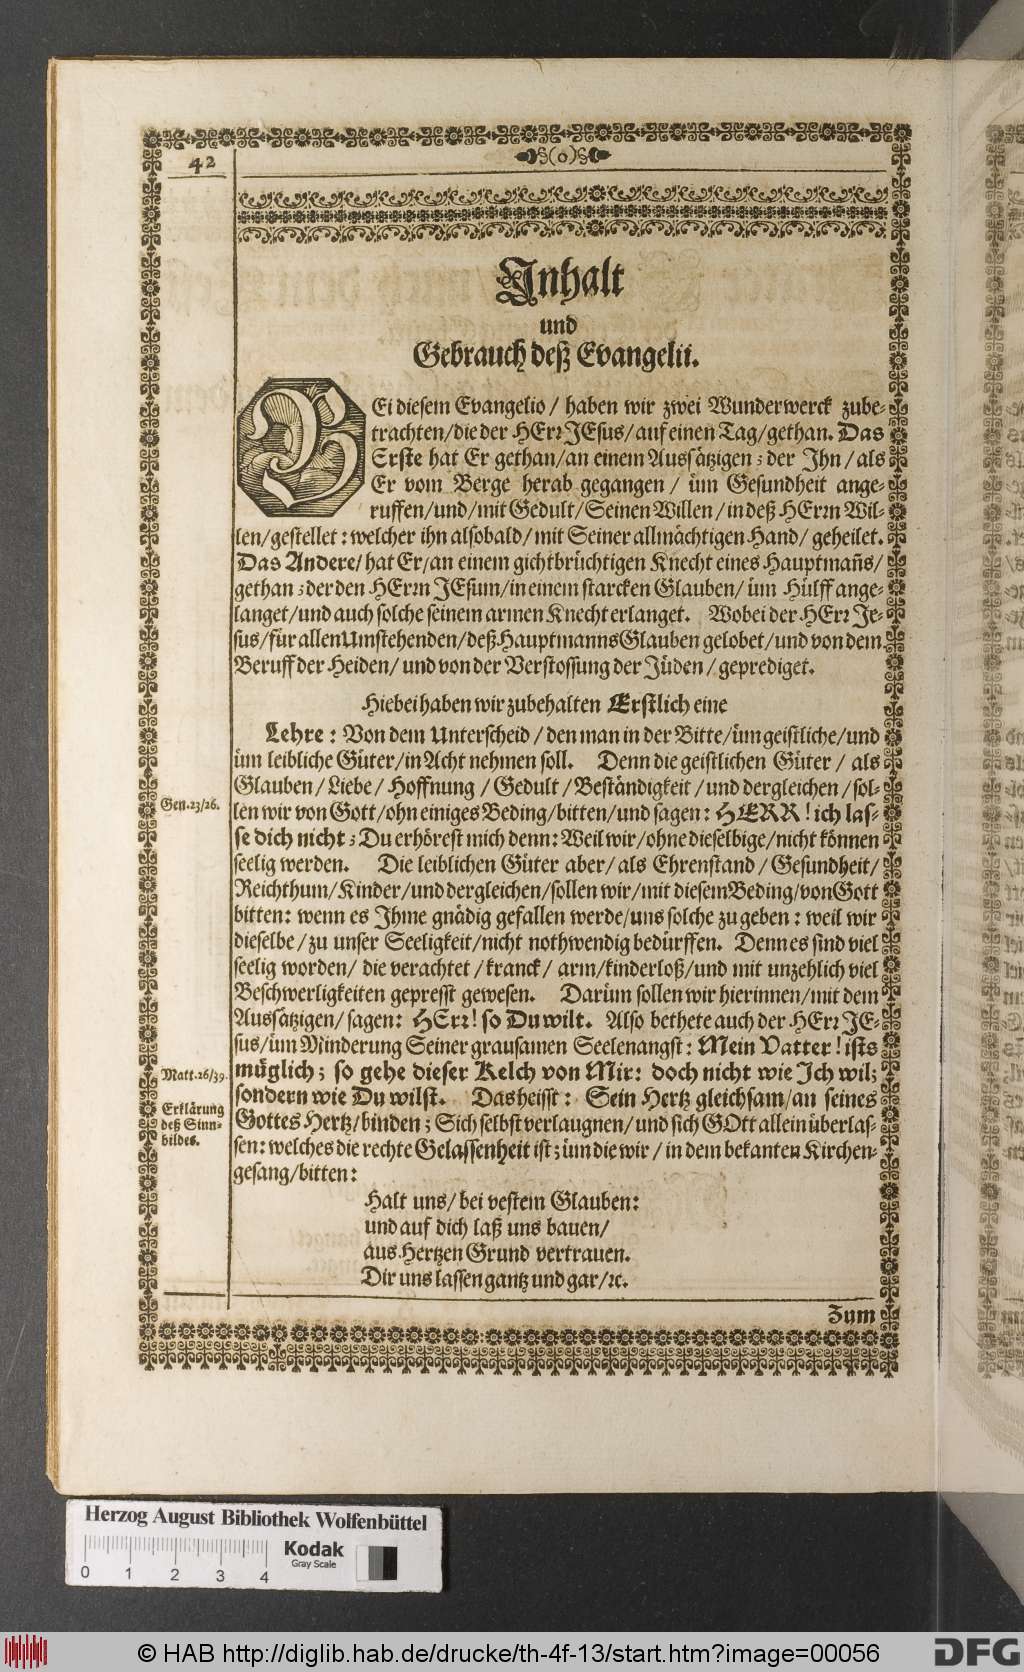 42
§(o)§
Inhalt
und
Gebrauch deß Evangelii.
BEi diesem Evangelio / haben wir zwei Wunderwerck zube-
trachten/die der HErr JEsus/auf einen Tag/gethan. Das
Erste hat Er gethan/an einem Aussätzigen; der Ihn/als
Er vom Berge herab gegangen / üm Gesundheit ange-
ruffen/und/mit Gedult/Seinen Willen/in deß HErrn Wil-
len/gestellet: welcher ihn alsobald/mit Seiner allmächtigen Hand/geheilet.
Das Andere/hat Er/an einem gichtbrüchtigen Knecht eines Hauptmañs/
gethan; der den HErrn JEsum/in einem starcken Glauben/üm Hülff ange-
langet/und auch solche seinem armen Knecht erlanget. Wobei der HErr Je-
sus/für allen Umstehenden/deß Hauptmanns Glauben gelobet/und von dem
Beruff der Heiden/und von der Verstossung der Jüden/geprediget.
Hiebei haben wir zubehalten Erstlich eine
Lehre: Von dem Unterscheid/den man in der Bitte/üm geistliche/und
üm leibliche Güter/in Acht nehmen soll. Denn die geistlichen Güter / als
Glauben/Liebe/Hoffnung/Gedult/Beständigkeit/und dergleichen/sol-
Gen.23/26. len wir von Gott/ohn einiges Beding/bitten/und sagen: HERR! ich las-
se dich nicht; Du erhörest mich denn: Weil wir/ohne dieselbige/nicht können
seelig werden. Die leiblichen Güter aber/als Ehrenstand/Gesundheit/
Reichthum/Kinder/und dergleichen/sollen wir/mit diesem Beding/von Gott
bitten: wenn es Ihme gnädig gefallen werde/uns solche zu geben: weil wir
dieselbe/zu unser Seeligkeit/nicht nothwendig bedürffen. Denn es sind viel
seelig worden/die verachtet/kranck/arm/kinderloß/und mit unzehlich viel
Beschwerligkeiten gepresst gewesen. Darüm sollen wir hierinnen/mit dem
Aussätzigen/sagen: HErr! so Du wilt. Also bethete auch der HErr JE-
sus/üm Minderung Seiner grausamen Seelenangst: Mein Vatter! ists
Matt.26/39. müglich; so gehe dieser Kelch von Mir: doch nicht wie Ich wil;
sondern wie Du wilst. Das heisst: Sein Hertz gleichsam/an seines
Erklärung
deß Sinn-
bildes.
Gottes Hertz/binden; Sich selbst verlaugnen/und sich GOtt allein überlas-
sen: welches die rechte Gelassenheit ist; üm die wir/in dem bekanten Kirchen-
gesang/bitten:
Halt uns/bei vestem Glauben:
und auf dich laß uns bauen/
aus Hertzen Grund vertrauen.
Dir uns lassen gantz und gar/ꝛc.
Zum
Herzog August Bibliothek Wolfenbüttel
Kodak
Gray Scale
0 1 2 3 4
© HAB http://diglib.hab.de/drucke/th-4f-13/start.htm?image=00056
DFG